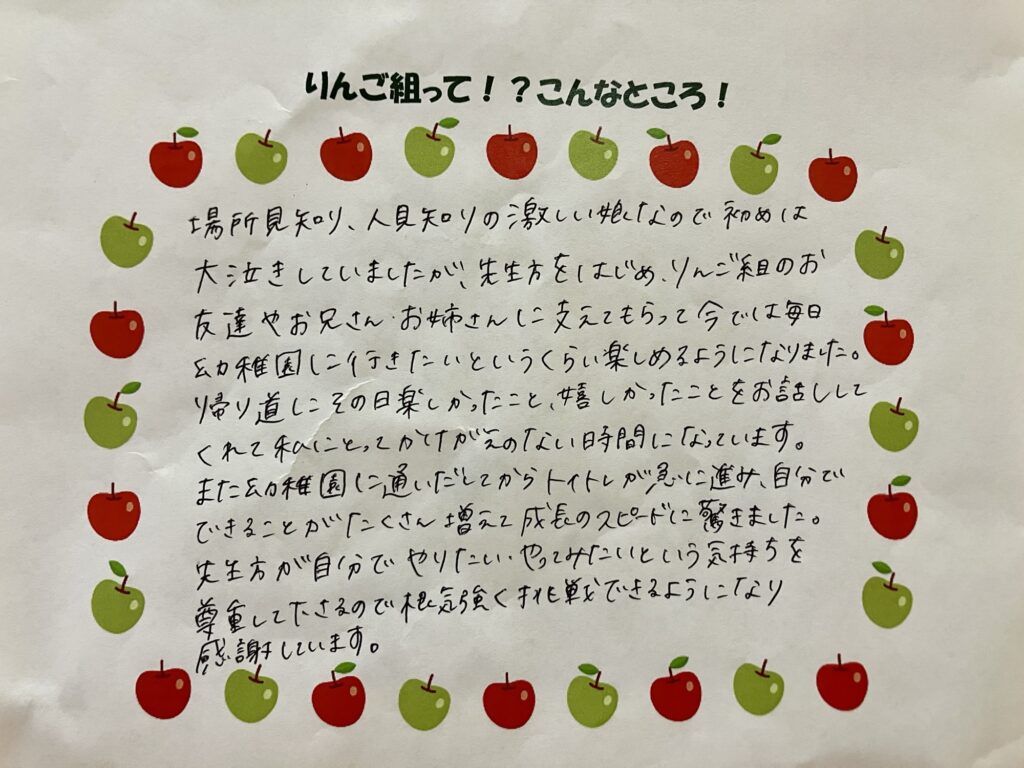 りんご組って！？こんなところ！
場所見知り、人見知りの激しい娘なので初めは
大泣きしていましたが、先生方をはじめ、りんご組のお
友達やお兄さん・お姉さんに支えてもらって今では毎日
幼稚園に行きたいというくらい楽しめるようになりました。
帰り道にその日楽しかったこと、嬉しかったことをお話しして
くれて私にとってかけがえのない時間になっています。
また幼稚園に通いだしてからトイトレが急に進み、自分で
できることがたくさん増えて成長のスピードに驚きました。
先生方が自分でやりたい・やってみたいという気持ちを
尊重して下さるので根気強く挑戦できるようになり
感謝しています。